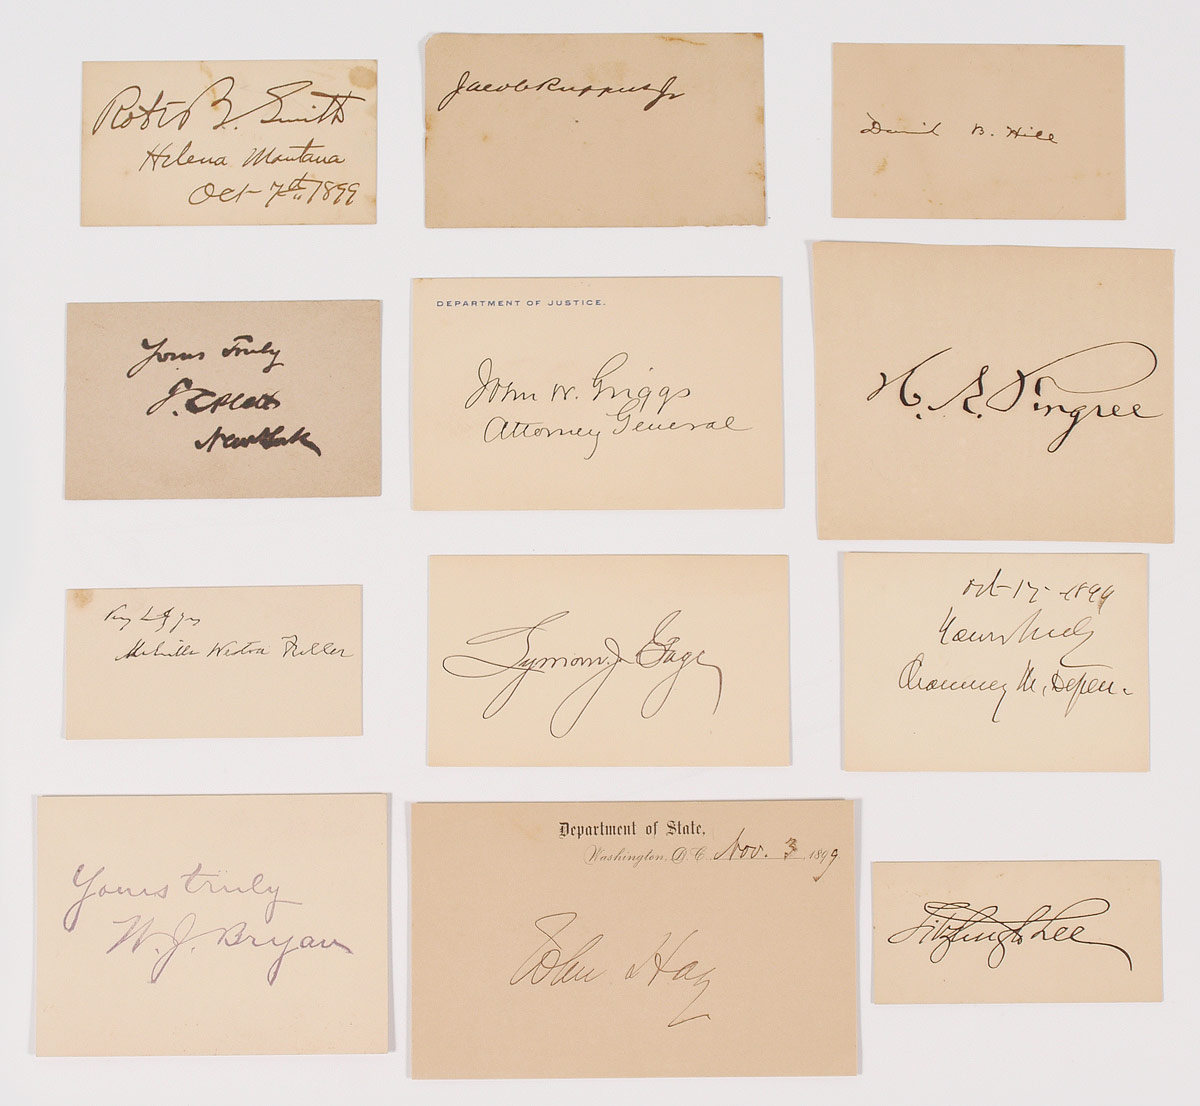 Robt B. Smith
Helena Montana
Oct 7th 1899
Jacob Ruppert Jr
David B. Hill
Yours Truly
T. C. Platt
New York
DEPARTMENT OF JUSTICE.
John W. Griggs
Attorney General
H. S. Pingree
Melville Weston Fuller
Lyman J. Gage
Oct-17-1899
Yours truly
Chauncey M. Depew
Yours truly
W. J. Bryan
Department of State,
Washington, D.C. Nov. 3 1899
John Hay
Fitzhugh Lee